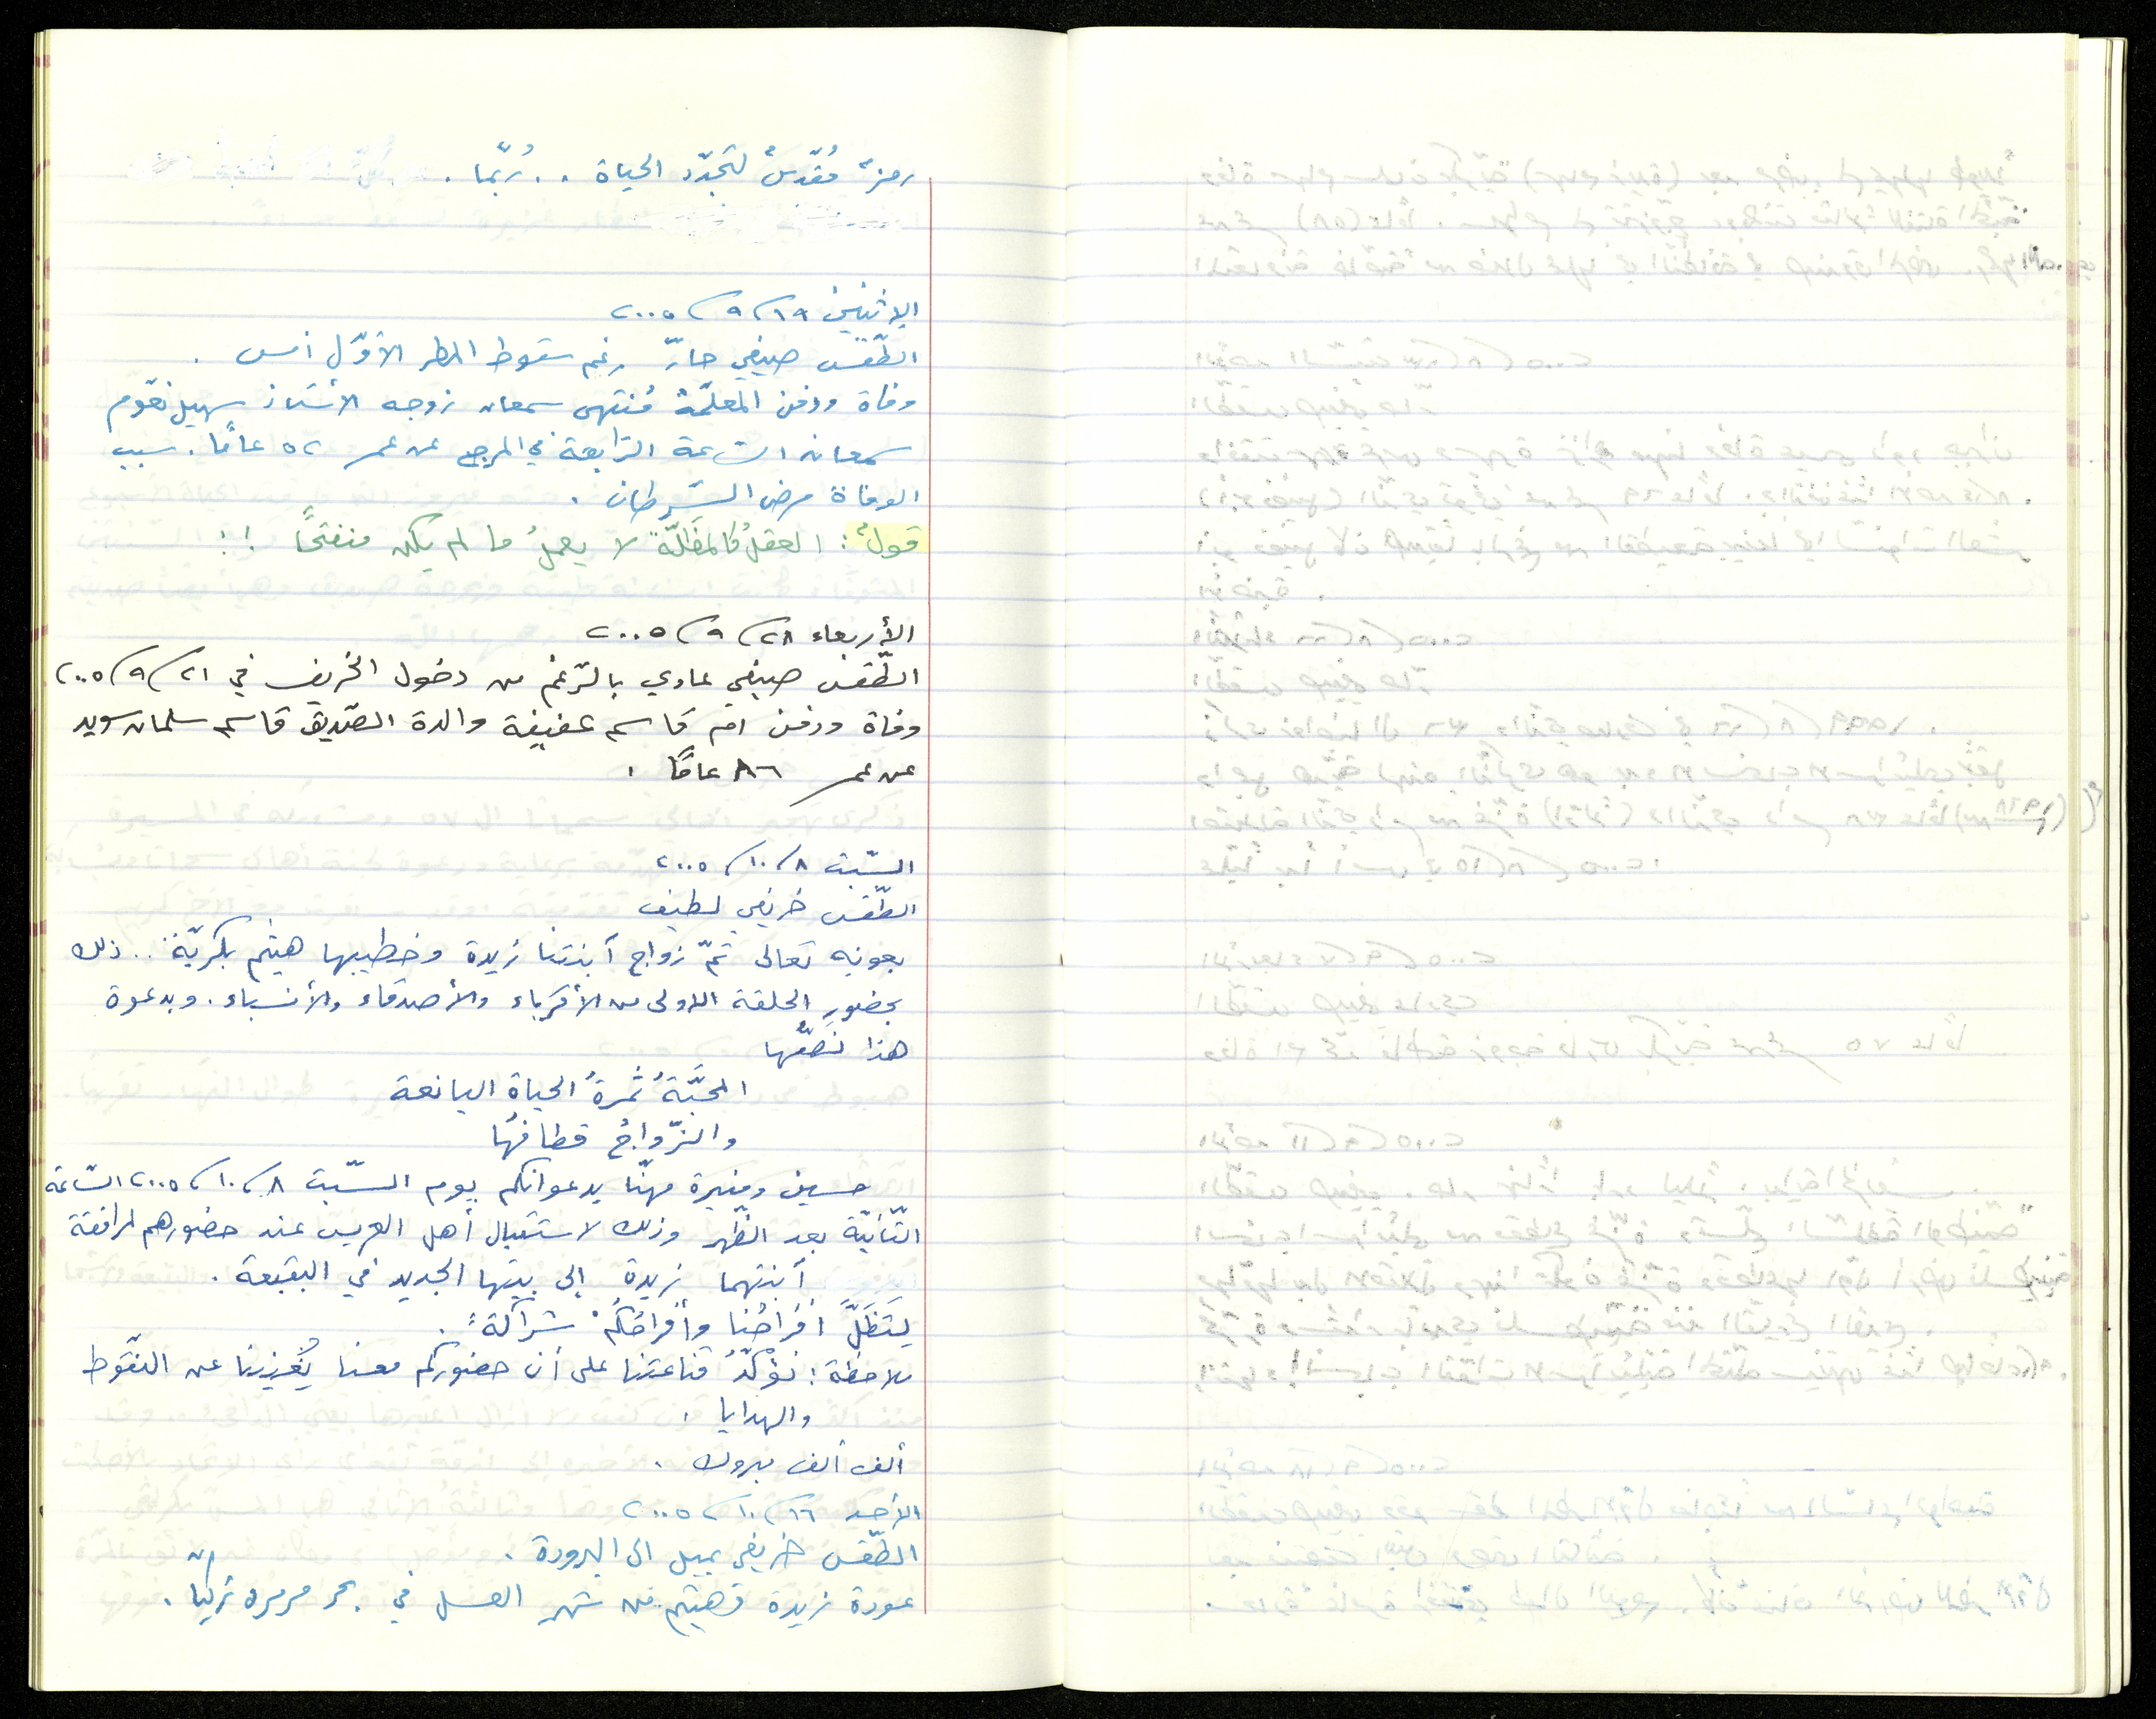 رمزٌ مُقدّسٌ لتجدّد الحياة .. رُبّما .
الإثنين ١٩/٩/٢٠٠٥
الطّقس صيفي حارّ رغم سقوط المطر الأوّل أمس .
وفاة ودفن المعلّمة مُنتهى سمعان زوجه الأستاذ سهيل نعّوم
سمعان السّاعة الرّابعة في المرج عن عمر ٥٢ عامًا. سبب
الوفاة مرض السّرطان .
قولٌ: العقلُ كالمظلّة لا يعملُ ما لم يكن منفتحًا !!
الأربعاء ٢٨/٩/٢٠٠٥
الطّقس صيفي عادي بالرّغم من دخول الخريف في ٢١/٩/٢٠٠٥
وفاة ودفن أم قاسم عفيفة والدة الصّديق قاسم سلمان سويد
عن عمر ٨٦ عامًا .
السّبت ٨/١٠/٢٠٠٥
الطّقس خريفي لطيف
بعونه تعالى تمّ زواج آبنتنا زيدة وخطيبها هيثم بكريّة.. ذلك
بحضورِ الحلقة الاولى من الأقرباء والأصدقاء والأنسباء. وبدعوة
هذا نصّها
المحبّةُ ثمرةُ الحياة اليانعة
والزّواجُ قطافُها
حسين ومنيرة مهنّا يدعوانكم يوم السّبت ٨/١٠/٢٠٠٥ السّاعة
الثّانيّة بعد الظّهر وذلك لاستقبال أهل العريس عند حضورهم لمرافقة
آبنتهما زيدة إلى بيتها الجديد في البقيعة .
لِتَظَلَّ أفراحُنا وأفراحُكُمْ شراكةً .
ملاحظة : نؤكّدُ قناعتنا على أن حضوركم معنا يُغنينا عن النّقوط
والهدايا .
ألف ألف مبروك .
الأحد ١٦/١٠/٢٠٠٥
الطّقس خريفي يميل الى البرودة .
عودة زيدة وهيثم من شهر العسل في بحر مرمره تركيا .